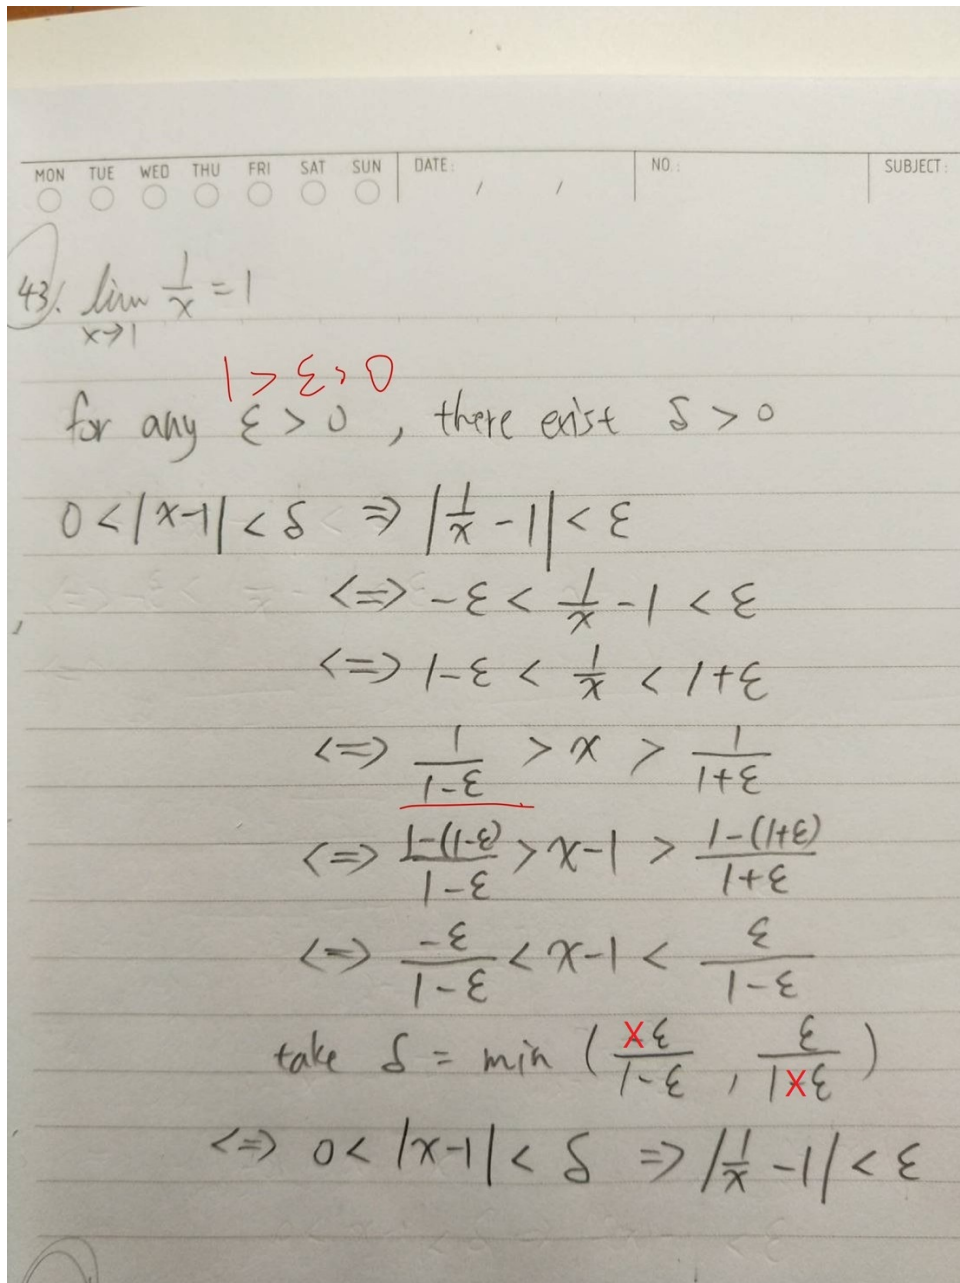 MON TUE WED THU FRI SAT SUN DATE: / / NO.: SUBJECT:
43. lim_{x→1} 1/x = 1
1 > ε > 0
for any ε > 0 , there exist δ > 0
0 < |x-1| < δ ⇒ |1/x - 1| < ε
<=> -ε < 1/x - 1 < ε
<=> 1-ε < 1/x < 1+ε
<=> 1/(1-ε) > x > 1/(1+ε)
<=> (1-(1-ε))/(1-ε) > x-1 > (1-(1+ε))/(1+ε)
<=> -ε/(1-ε) < x-1 < ε/(1-ε)
take δ = min ( xε/(1-ε) , ε/(1xε) )
<=> 0 < |x-1| < δ => |1/x - 1| < ε